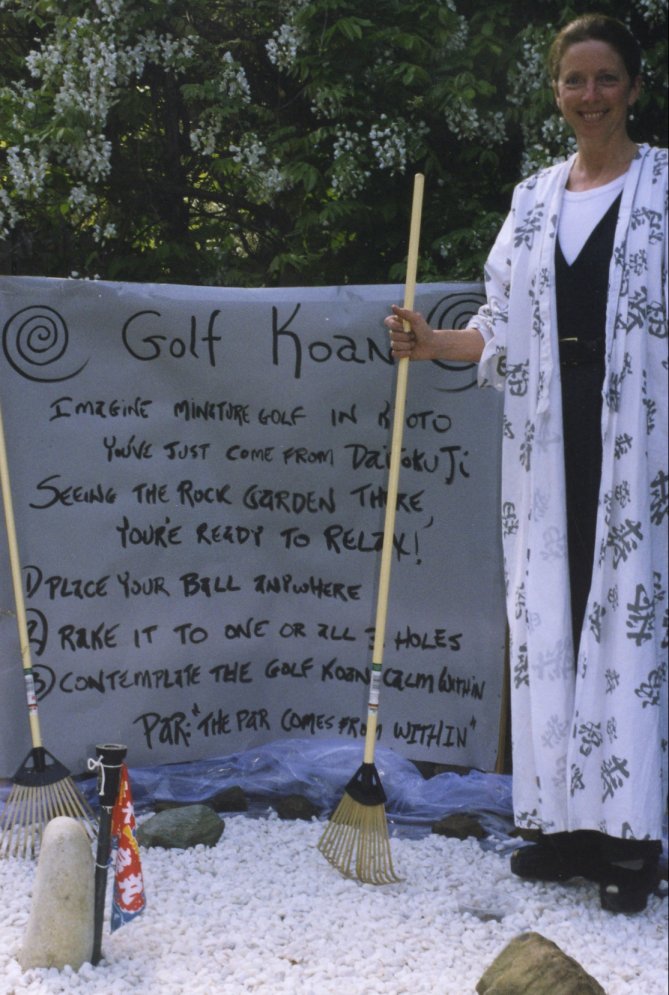 Golf Koan
Imagine minature golf in Kyoto
You've just come from Daitoku Ji
Seeing the Rock Garden there
you're ready to relax!
1) Place your ball anywhere
2) Rake it to one or all 3 holes
3) Contemplate the Golf Koan calm within
Par: "The par comes from within"